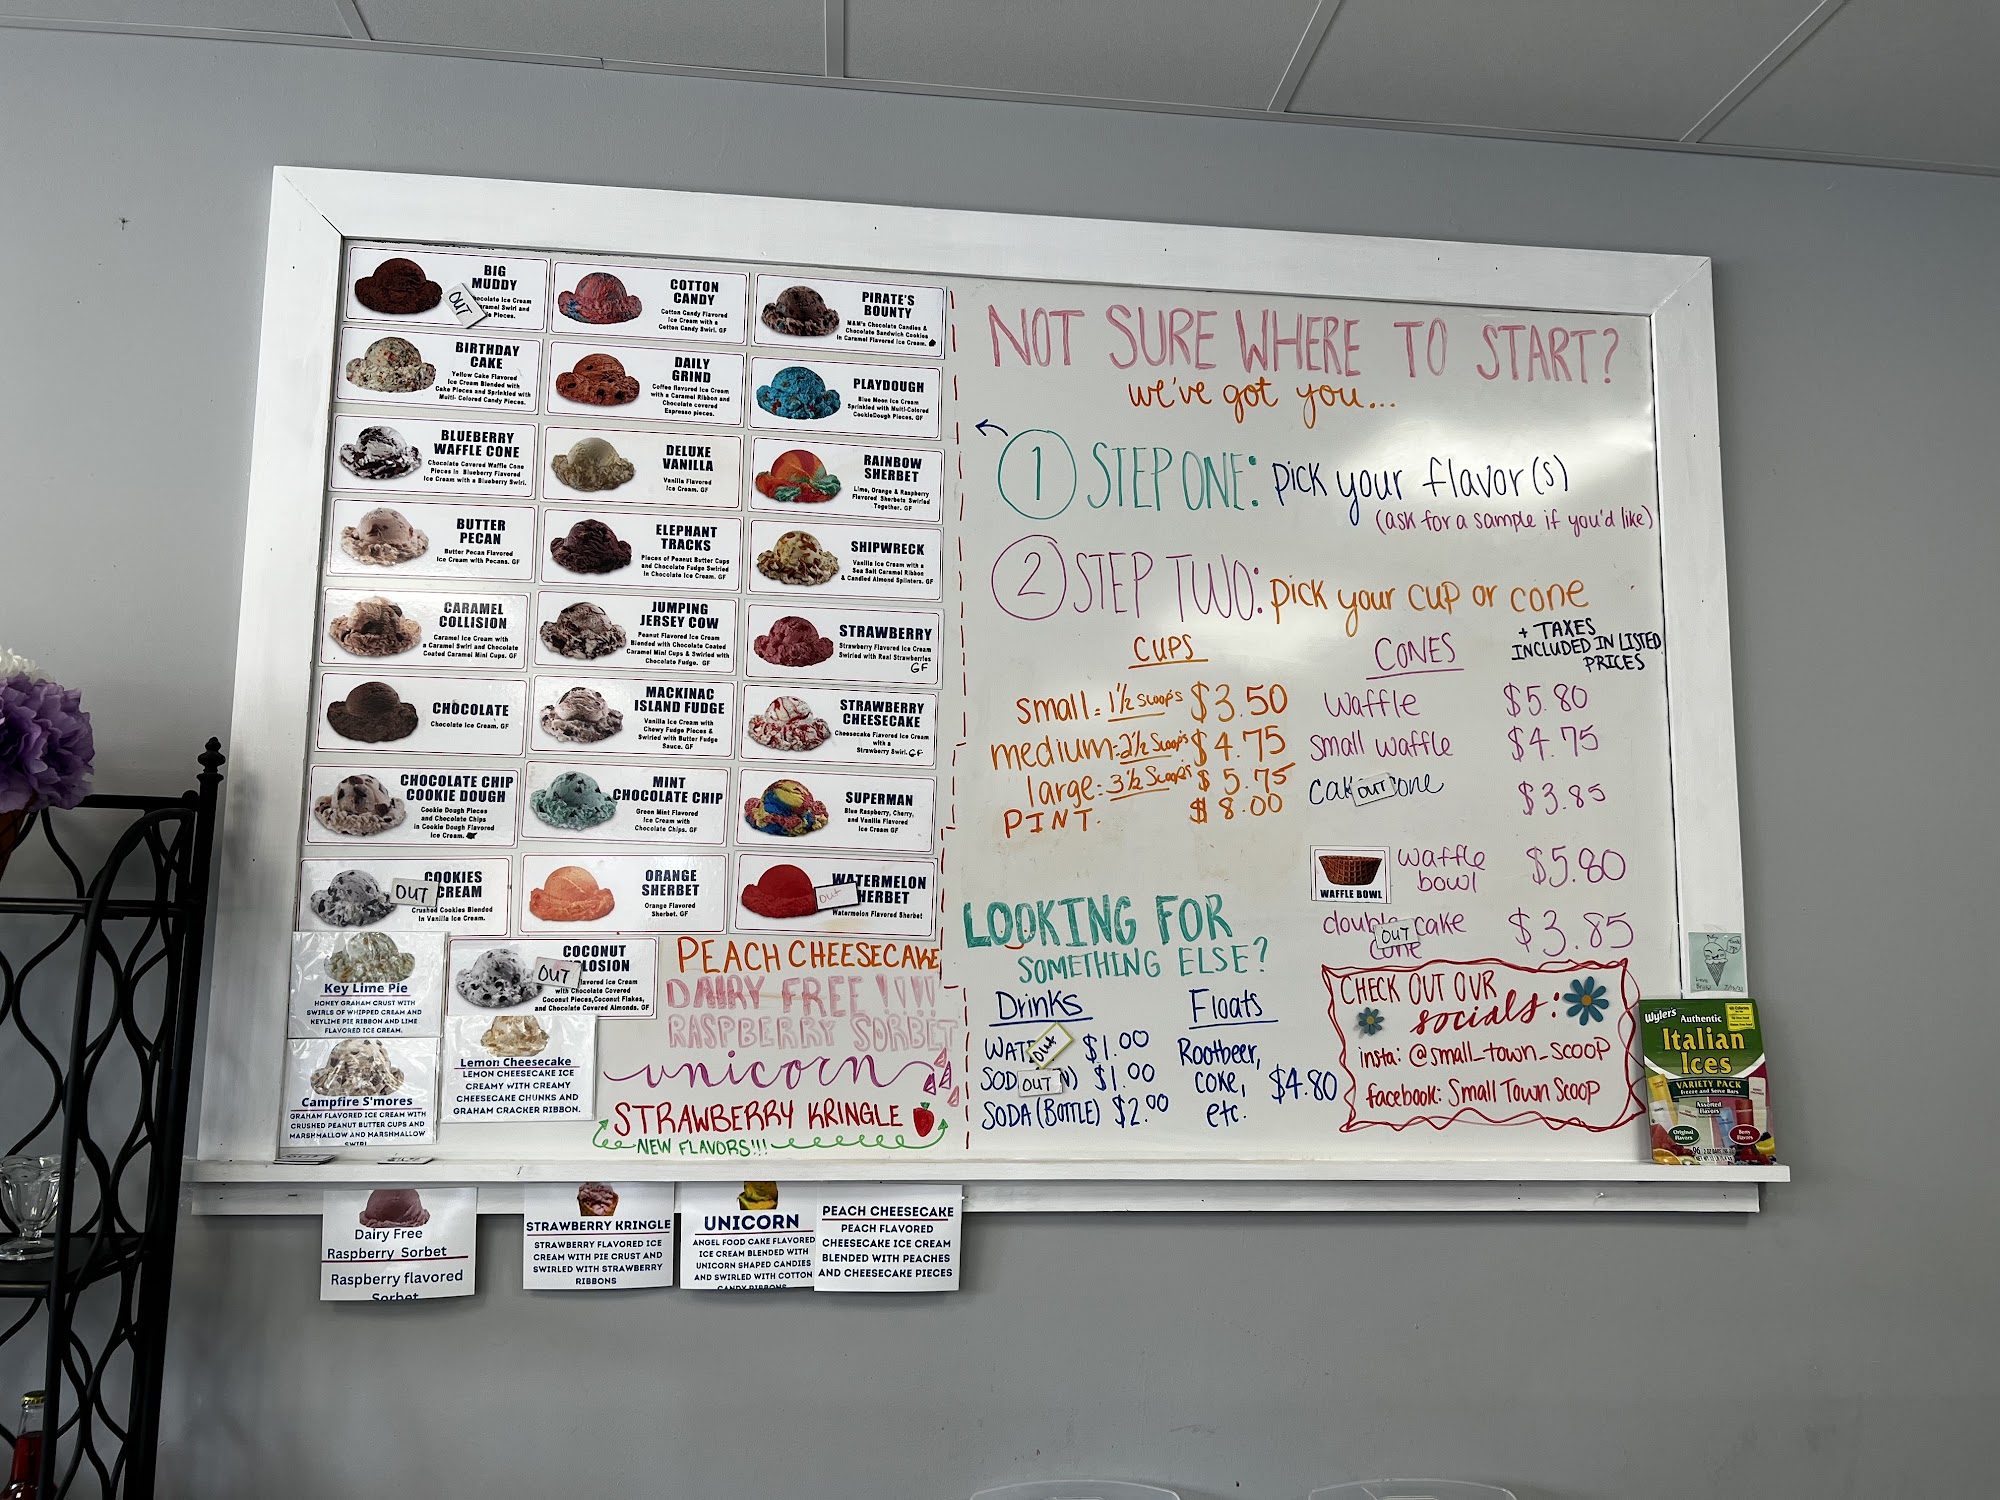 BIG
MUDDY
OUT
ocolate Ice Cream
aramel Swirl and
le Pieces.
COTTON
CANDY
Cotton Candy Flavored
Ice Cream with a
Cotton Candy Swirl. GF
PIRATE'S
BOUNTY
M&M's Chocolate Candies &
Chocolate Sandwich Cookies
in Caramel Flavored Ice Cream.
BIRTHDAY
CAKE
Yellow Cake Flavored
Ice Cream Blended with
Cake Pieces and Sprinkled with
Multi- Colored Candy Pieces.
DAILY
GRIND
Coffee flavored Ice Cream
with a Caramel Ribbon and
Chocolate covered
Espresso pieces.
PLAYDOUGH
Blue Moon Ice Cream
Sprinkled with Multi-Colored
CookieDough Pieces. GF
BLUEBERRY
WAFFLE CONE
Chocolate Covered Waffle Cone
Pieces in Blueberry Flavored
Ice Cream with a Blueberry Swirl.
DELUXE
VANILLA
Vanilla Flavored
Ice Cream. GF
RAINBOW
SHERBET
Lime, Orange & Raspberry
Flavored Sherbets Swirled
Together. GF
BUTTER
PECAN
Butter Pecan Flavored
Ice Cream with Pecans. GF
ELEPHANT
TRACKS
Pieces of Peanut Butter Cups
and Chocolate Fudge Swirled
in Chocolate Ice Cream. GF
SHIPWRECK
Vanilla Ice Cream with a
Sea Salt Caramel Ribbon
& Candied Almond Splinters. GF
CARAMEL
COLLISION
Caramel Ice Cream with
a Caramel Swirl and Chocolate
Coated Caramel Mini Cups. GF
JUMPING
JERSEY COW
Peanut Flavored Ice Cream
Blended with Chocolate Coated
Caramel Mini Cups & Swirled with
Chocolate Fudge. GF
STRAWBERRY
Strawberry Flavored Ice Cream
Swirled with Real Strawberries
GF
CHOCOLATE
Chocolate Ice Cream. GF
MACKINAC
ISLAND FUDGE
Vanilla Ice Cream with
Chewy Fudge Pieces &
Swirled with Butter Fudge
Sauce. GF
STRAWBERRY
CHEESECAKE
Cheesecake Flavored Ice Cream
with a
Strawberry Swirl. GF
CHOCOLATE CHIP
COOKIE DOUGH
Cookie Dough Pieces
and Chocolate Chips
in Cookie Dough Flavored
Ice Cream.
MINT
CHOCOLATE CHIP
Green Mint Flavored
Ice Cream with
Chocolate Chips. GF
SUPERMAN
Blue Raspberry, Cherry,
and Vanilla Flavored
Ice Cream GF
COOKIES
OUT CREAM
Crushed Cookies Blended
in Vanilla Ice Cream.
ORANGE
SHERBET
Orange Flavored
Sherbet. GF
WATERMELON
Out HERBET
Watermelon Flavored Sherbet
Key Lime Pie
HONEY GRAHAM CRUST WITH
SWIRLS OF WHIPPED CREAM AND
KEYLIME PIE RIBBON AND LIME
FLAVORED ICE CREAM.
COCONUT
OUT LOSION
lavored Ice Cream
with Chocolate Covered
Coconut Pieces,Coconut Flakes,
and Chocolate Covered Almonds. GF
Campfire S'mores
GRAHAM FLAVORED ICE CREAM WITH
CRUSHED PEANUT BUTTER CUPS AND
MARSHMALLOW AND MARSHMALLOW
SWIRL
Lemon Cheesecake
LEMON CHEESECAKE ICE
CREAMY WITH CREAMY
CHEESECAKE CHUNKS AND
GRAHAM CRACKER RIBBON.
PEACH CHEESECAKE
DAIRY FREE !!!!
RASPBERRY SORBET
unicorn
STRAWBERRY KRINGLE
NEW FLAVORS!!!
Dairy Free
Raspberry Sorbet
Raspberry flavored
Sorbet
STRAWBERRY KRINGLE
STRAWBERRY FLAVORED ICE
CREAM WITH PIE CRUST AND
SWIRLED WITH STRAWBERRY
RIBBONS
UNICORN
ANGEL FOOD CAKE FLAVORED
ICE CREAM BLENDED WITH
UNICORN SHAPED CANDIES
AND SWIRLED WITH COTTON
CANDY RIBBONS
PEACH CHEESECAKE
PEACH FLAVORED
CHEESECAKE ICE CREAM
BLENDED WITH PEACHES
AND CHEESECAKE PIECES
NOT SURE WHERE TO START?
we've got you...
1 STEP ONE: pick your flavor(s)
(ask for a sample if you'd like)
2 STEP TWO: pick your cup or cone
CUPS
small = 1½ scoop's $3.50
medium = 2½ Scoop's $4.75
large: 3½ Scoop's $5.75
PINT. $8.00
CONES
+ TAXES
INCLUDED IN LISTED
PRICES
waffle $5.80
small waffle $4.75
cak OUT cone $3.85
WAFFLE BOWL
waffle
bowl $5.80
double OUT cake
cone $3.85
LOOKING FOR
SOMETHING ELSE?
Drinks
WAT Out $1.00
SOD OUT N) $1.00
SODA (BOTTLE) $2.00
Floats
Rootbeer,
coke,
etc. $4.80
CHECK OUT OUR
socials:
insta: @small_town_scoop
facebook: Small Town Scoop
Wyler's Authentic
Italian
Ices
VARIETY PACK
Freeze and Serve Bars
Assorted
Flavors
Original
Flavors
Berry
Flavors